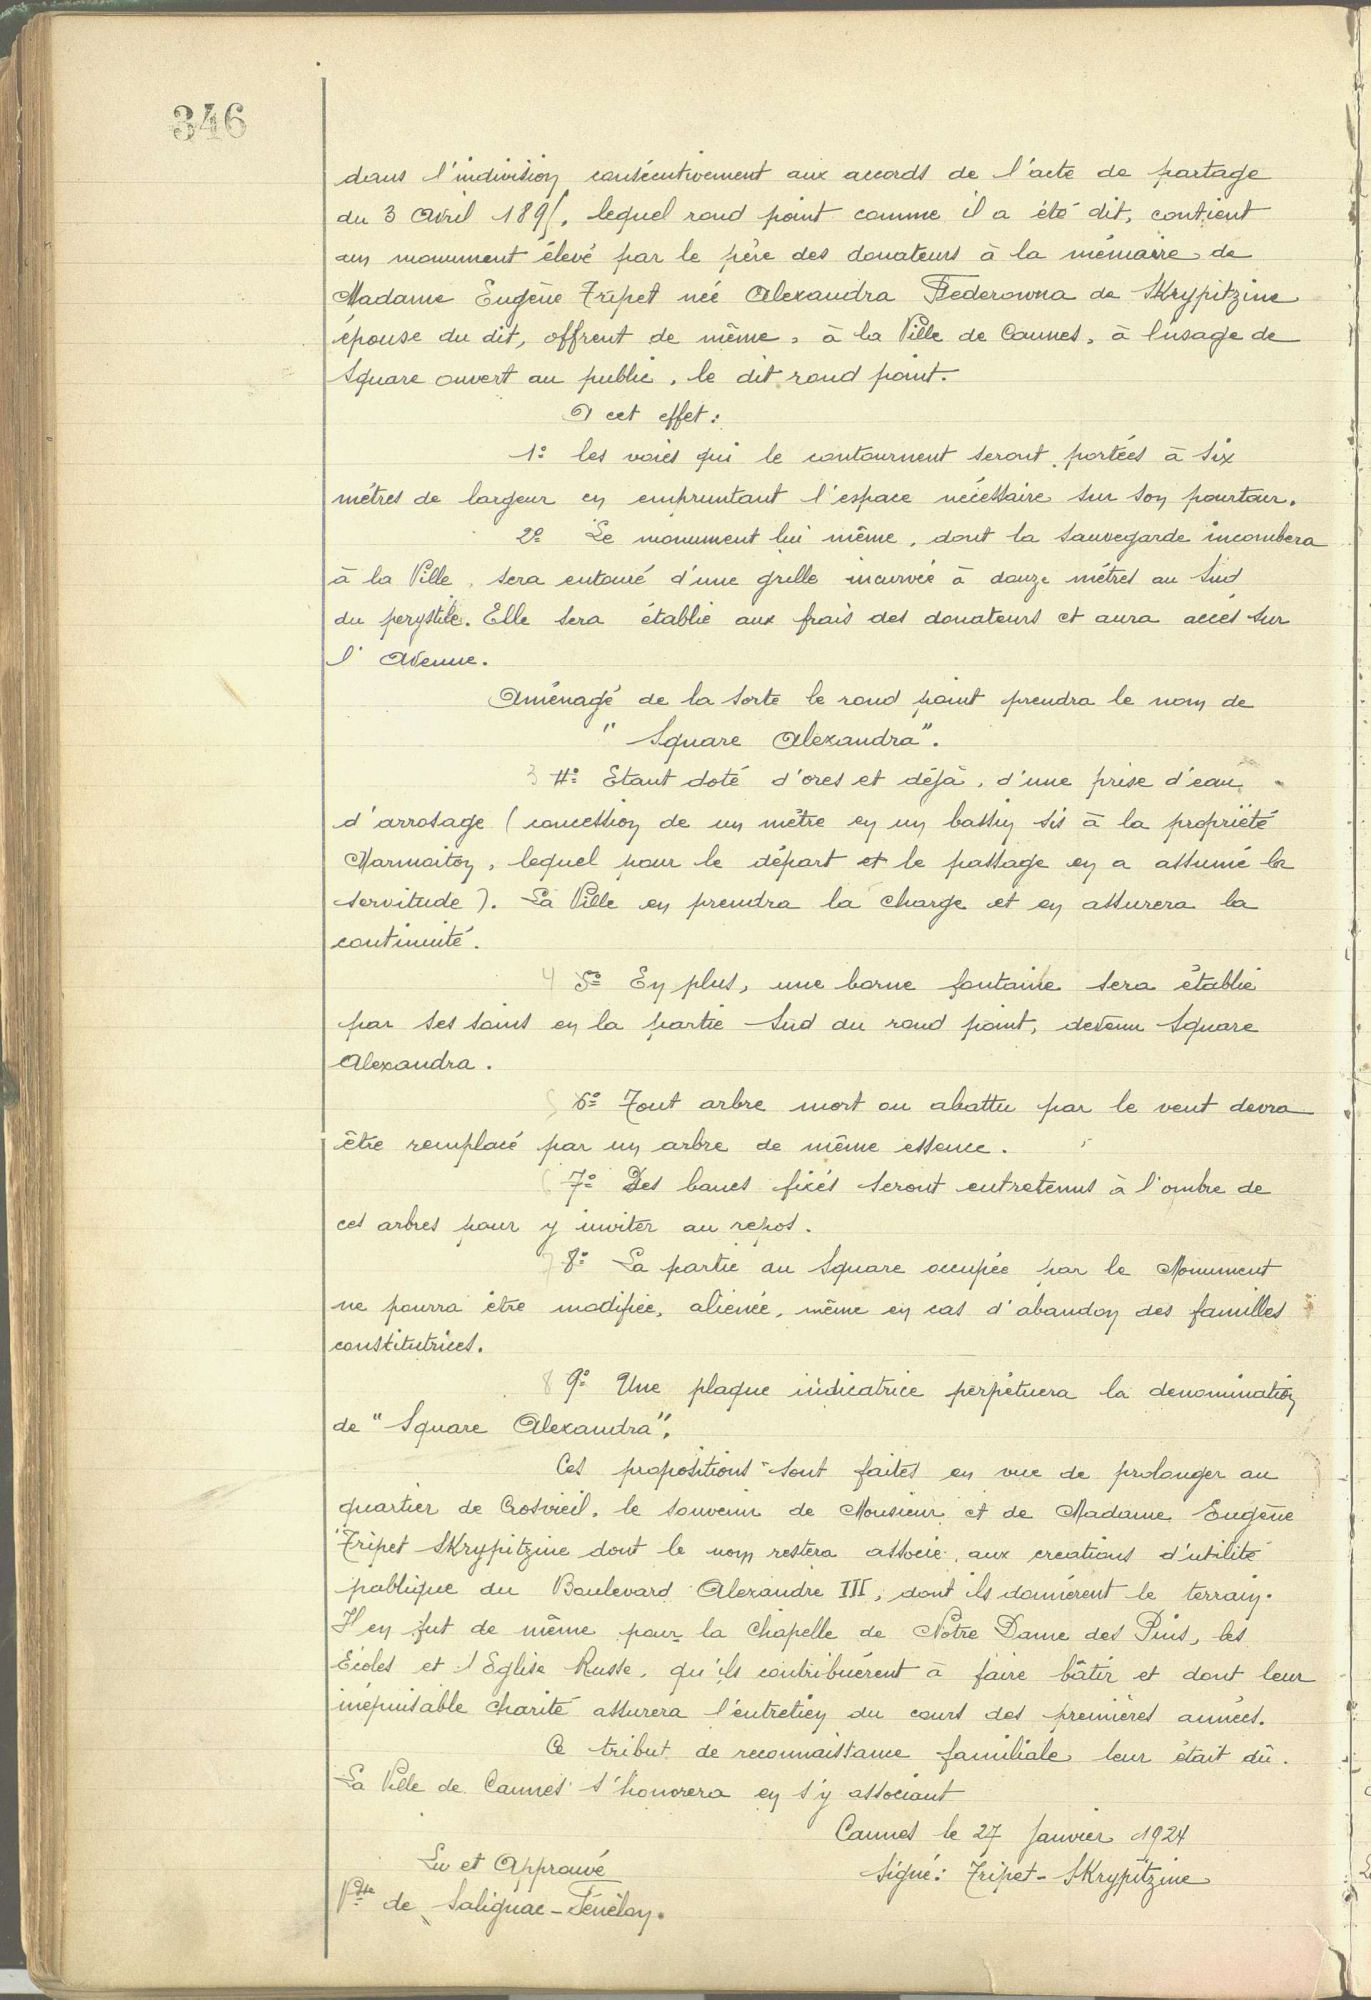 346
dans l'indivision consécutivement aux accords de l'acte de partage
du 3 Avril 189[, lequel rond point comme il a été dit, contient
un monument élevé par le père des donateurs à la mémoire de
Madame Eugène Tripet née Alexandra Féederowna de Skrypitzine
épouse du dit, offrent de même, à la Ville de Cannes, à l'usage de
Square ouvert au public, le dit rond point.
A cet effet :
1º les voies qui le contournent seront portées à six
mètres de largeur en empruntant l'espace nécessaire sur son pourtour.
2º Le monument lui même, dont la sauvegarde incombera
à la Ville, sera entouré d'une grille incurvée à douze mètres au Sud
du perystile. Elle sera établie aux frais des donateurs et aura accès sur
l'Avenue.
Aménagé de la sorte le rond point prendra le nom de
" Square Alexandra".
3 4º Etant doté d'ores et déjà, d'une prise d'eau
d'arrosage (concession de un mètre en un bassin sis à la propriété
Marmoiton, lequel pour le départ et le passage en a assumé la
servitude). La Ville en prendra la charge et en assurera la
continuité.
4 5º En plus, une borne fontaine sera établie
par ses soins en la partie Sud du rond point, devenu Square
Alexandra.
5 6º Tout arbre mort ou abattu par le vent devra
être remplacé par un arbre de même essence.
6 7º Des bancs fixés seront entretenus à l'ombre de
ces arbres pour y inviter au repos.
7 8º La partie du Square occupée par le Monument
ne pourra être modifiée, aliénée, même en cas d'abandon des familles
constitutrices.
8 9º Une plaque indicatrice perpétuera la denomination
de "Square Alexandra".
Ces propositions sont faites en vue de prolonger au
quartier de Crosvieil, le souvenir de Monsieur et de Madame Eugène
Tripet Skrypitzine dont le nom restera associé aux creations d'utilité
publique du Boulevard Alexandre III, dont ils donnèrent le terrain.
Il en fut de même pour la Chapelle de Notre Dame des Pins, les
Ecoles et l'Eglise Russe, qu'ils contribuèrent à faire bâtir et dont leur
inépuisable charité assurera l'entretien du cours des premières années.
Ce tribut de reconnaissance familiale leur était dû.
La Ville de Cannes s'honorera en s'y associant
Cannes le 27 Janvier 1924
Lu et Approuvé
Signé : Tripet-Skrypitzine
Vtsse de Salignac-Fénélon.